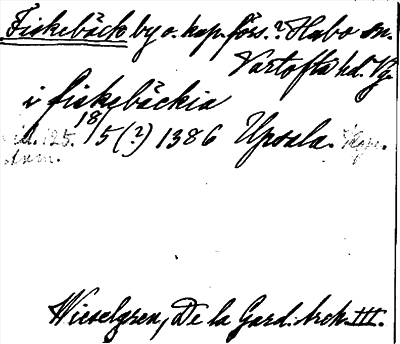 Fiskebäck by o. kap. förs.? Habo sn.
Vartofta hd. Vg.
i fiskebäckia
18/5 (?) 1386 Upsala.
Wieselgren, De la Gard. Ark. III.